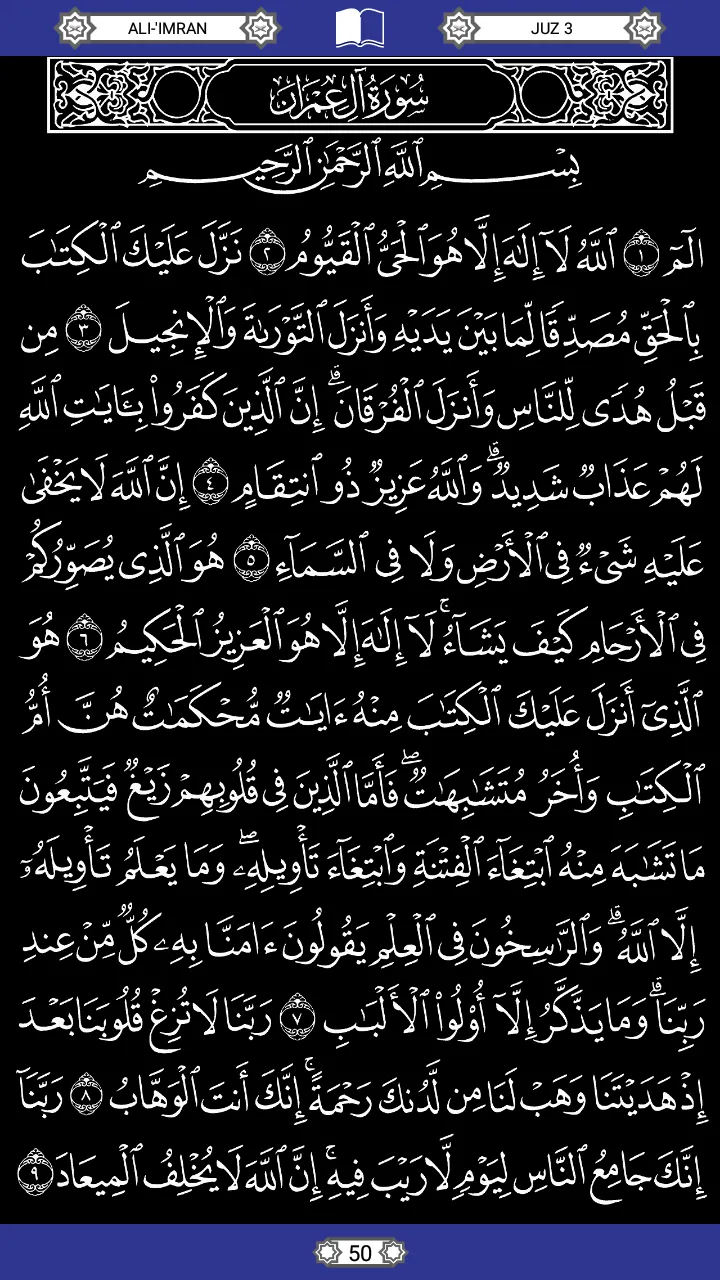 ALI-'IMRAN
JUZ 3
سُورَةُ آلِ عِمْرَانَ
بِسْمِ ٱللَّهِ ٱلرَّحْمَٰنِ ٱلرَّحِيمِ
الٓمٓ ١ ٱللَّهُ لَآ إِلَٰهَ إِلَّا هُوَ ٱلْحَىُّ ٱلْقَيُّومُ ٢ نَزَّلَ عَلَيْكَ ٱلْكِتَٰبَ
بِٱلْحَقِّ مُصَدِّقًا لِّمَا بَيْنَ يَدَيْهِ وَأَنزَلَ ٱلتَّوْرَىٰةَ وَٱلْإِنجِيلَ ٣ مِن
قَبْلُ هُدًى لِّلنَّاسِ وَأَنزَلَ ٱلْفُرْقَانَ ۗ إِنَّ ٱلَّذِينَ كَفَرُوا۟ بِـَٔايَٰتِ ٱللَّهِ
لَهُمْ عَذَابٌ شَدِيدٌ ۗ وَٱللَّهُ عَزِيزٌ ذُو ٱنتِقَامٍ ٤ إِنَّ ٱللَّهَ لَا يَخْفَىٰ
عَلَيْهِ شَىْءٌ فِى ٱلْأَرْضِ وَلَا فِى ٱلسَّمَآءِ ٥ هُوَ ٱلَّذِى يُصَوِّرُكُمْ
فِى ٱلْأَرْحَامِ كَيْفَ يَشَآءُ ۚ لَآ إِلَٰهَ إِلَّا هُوَ ٱلْعَزِيزُ ٱلْحَكِيمُ ٦ هُوَ
ٱلَّذِىٓ أَنزَلَ عَلَيْكَ ٱلْكِتَٰبَ مِنْهُ ءَايَٰتٌ مُّحْكَمَٰتٌ هُنَّ أُمُّ
ٱلْكِتَٰبِ وَأُخَرُ مُتَشَٰبِهَٰتٌ ۖ فَأَمَّا ٱلَّذِينَ فِى قُلُوبِهِمْ زَيْغٌ فَيَتَّبِعُونَ
مَا تَشَٰبَهَ مِنْهُ ٱبْتِغَآءَ ٱلْفِتْنَةِ وَٱبْتِغَآءَ تَأْوِيلِهِۦ ۖ وَمَا يَعْلَمُ تَأْوِيلَهُۥٓ
إِلَّا ٱللَّهُ ۗ وَٱلرَّٰسِخُونَ فِى ٱلْعِلْمِ يَقُولُونَ ءَامَنَّا بِهِۦ كُلٌّ مِّنْ عِندِ
رَبِّنَا ۗ وَمَا يَذَّكَّرُ إِلَّآ أُو۟لُوا۟ ٱلْأَلْبَٰبِ ٧ رَبَّنَا لَا تُزِغْ قُلُوبَنَا بَعْدَ
إِذْ هَدَيْتَنَا وَهَبْ لَنَا مِن لَّدُنكَ رَحْمَةً ۚ إِنَّكَ أَنتَ ٱلْوَهَّابُ ٨ رَبَّنَآ
إِنَّكَ جَامِعُ ٱلنَّاسِ لِيَوْمٍ لَّا رَيْبَ فِيهِ ۚ إِنَّ ٱللَّهَ لَا يُخْلِفُ ٱلْمِيعَادَ ٩
50